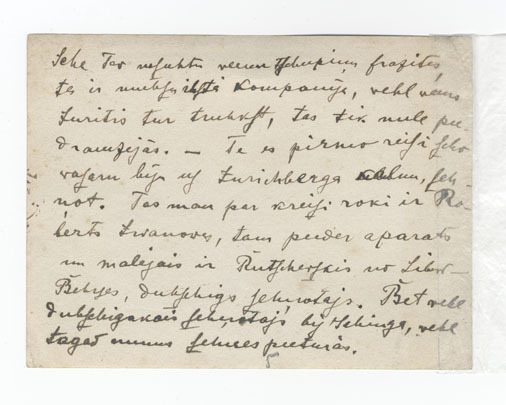 Sche Tev nosuhtu veenu Tschupinu fragites,
te ir muhsu kompanija, vehl veens
Zuritis tur truhkst, tas tik nule pee-
draudsejās. — Te es pirmo reisi scho
vasaru biju us Zurichberga kalnu, seh-
not. Tas man par kreisi roki ir Ro-
berts Iwanovs, tam peeder aparats
un malejais ir Rutschevskis no Libew-
Behrses, duhschigs sehnotajs. Bet vehl
duhschigakais sehnotajs bij Schinga, vehl
tagad mums sehnes pieturās.
5